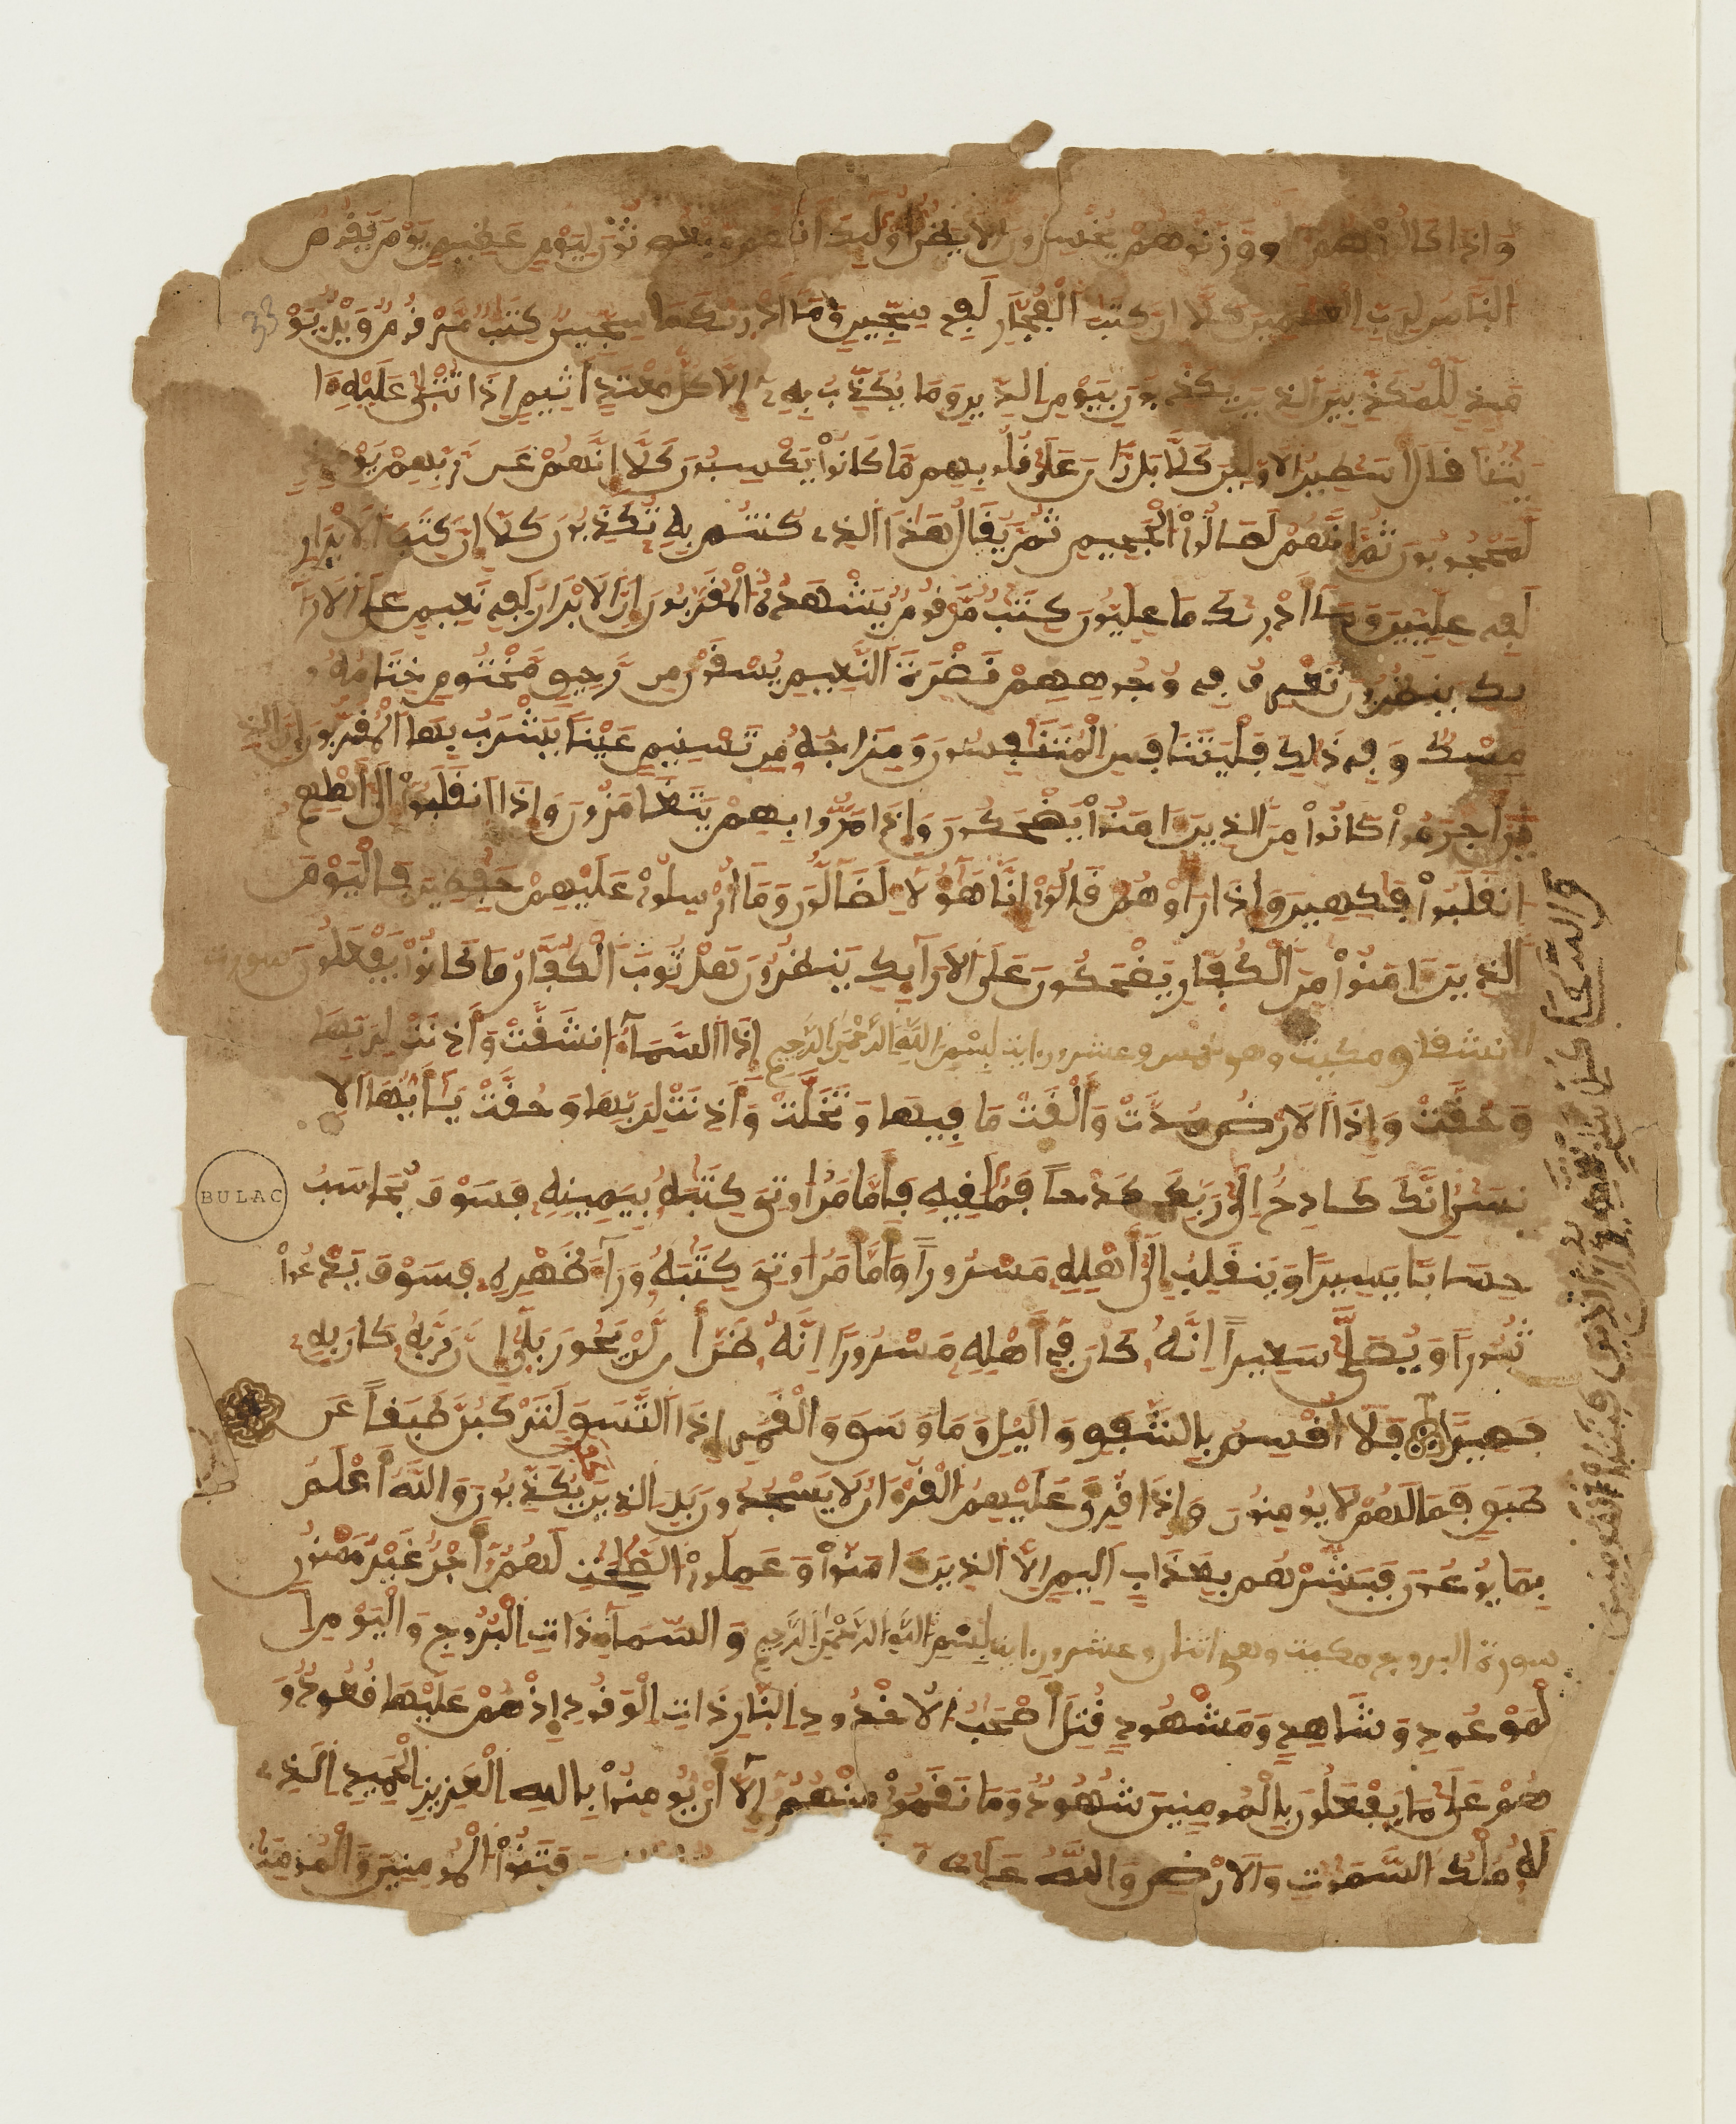 وَإِذَا كَالُوهُمُ أَو وَّزَنُوهُمْ يُخْسِرُونَ أَلَا يَظُنُّ أُوْلَٰٓئِكَ أَنَّهُم مَّبْعُوثُونَ لِيَوْمٍ عَظِيمٍ يَوْمَ يَقُومُ
النَّاسُ لِرَبِّ الْعَٰلَمِينَ كَلَّا إِنَّ كِتَٰبَ الْفُجَّارِ لَفِي سِجِّينٍ وَمَا أَدْرَٰكَ مَا سِجِّينٌ كِتَٰبٌ مَّرْقُومٌ وَيْلٌ يَوْ
مَئِذٍ لِّلْمُكَذِّبِينَ الَّذِينَ يُكَذِّبُونَ بِيَوْمِ الدِّينِ وَمَا يُكَذِّبُ بِهِ إِلَّا كُلُّ مُعْتَدٍ أَثِيمٍ إِذَا تُتْلَىٰ عَلَيْهِ ءَا
يَٰتُنَا قَالَ أَسَٰطِيرُ الْأَوَّلِينَ كَلَّا بَل رَّانَ عَلَىٰ قُلُوبِهِم مَّا كَانُوا يَكْسِبُونَ كَلَّا إِنَّهُمْ عَن رَّبِّهِمْ يَوْمَئِذٍ
لَّمَحْجُوبُونَ ثُمَّ إِنَّهُمْ لَصَالُوا الْجَحِيمِ ثُمَّ يُقَالُ هَٰذَا الَّذِي كُنتُم بِهِ تُكَذِّبُونَ كَلَّا إِنَّ كِتَٰبَ الْأَبْرَارِ
لَفِي عِلِّيِّينَ وَمَا أَدْرَٰكَ مَا عِلِّيُّونَ كِتَٰبٌ مَّرْقُومٌ يَشْهَدُهُ الْمُقَرَّبُونَ إِنَّ الْأَبْرَارَ لَفِي نَعِيمٍ عَلَى الْأَرَآ
ئِكِ يَنظُرُونَ تَعْرِفُ فِي وُجُوهِهِمْ نَضْرَةَ النَّعِيمِ يُسْقَوْنَ مِن رَّحِيقٍ مَّخْتُومٍ خِتَٰمُهُ
مِسْكٌ وَفِي ذَٰلِكَ فَلْيَتَنَافَسِ الْمُتَنَٰفِسُونَ وَمِزَاجُهُ مِن تَسْنِيمٍ عَيْنًا يَشْرَبُ بِهَا الْمُقَرَّبُونَ إِنَّ الَّذِ
ينَ أَجْرَمُوا كَانُوا مِنَ الَّذِينَ ءَامَنُوا يَضْحَكُونَ وَإِذَا مَرُّوا بِهِمْ يَتَغَامَزُونَ وَإِذَا انقَلَبُوا إِلَىٰ أَهْلِهِمُ
انقَلَبُوا فَٰكِهِينَ وَإِذَا رَأَوْهُمْ قَالُوا إِنَّ هَٰؤُلَاءِ لَضَالُّونَ وَمَا أُرْسِلُوا عَلَيْهِمْ حَٰفِظِينَ فَالْيَوْمَ
الَّذِينَ ءَامَنُوا مِنَ الْكُفَّارِ يَضْحَكُونَ عَلَى الْأَرَآئِكِ يَنظُرُونَ هَلْ ثُوِّبَ الْكُفَّارُ مَا كَانُوا يَفْعَلُونَ سورت
الانشقاق مكيت وهي خمس وعشرون ايت بِسْمِ اللَّهِ الرَّحْمَٰنِ الرَّحِيمِ إِذَا السَّمَاءُ انشَقَّتْ وَأَذِنَتْ لِرَبِّهَا
وَحُقَّتْ وَإِذَا الْأَرْضُ مُدَّتْ وَأَلْقَتْ مَا فِيهَا وَتَخَلَّتْ وَأَذِنَتْ لِرَبِّهَا وَحُقَّتْ يَٰأَيُّهَا الْإِ
نسَٰنُ إِنَّكَ كَادِحٌ إِلَىٰ رَبِّكَ كَدْحًا فَمُلَٰقِيهِ فَأَمَّا مَنْ أُوتِيَ كِتَٰبَهُ بِيَمِينِهِ فَسَوْفَ يُحَاسَبُ
حِسَابًا يَسِيرًا وَيَنقَلِبُ إِلَىٰ أَهْلِهِ مَسْرُورًا وَأَمَّا مَنْ أُوتِيَ كِتَٰبَهُ وَرَآءَ ظَهْرِهِ فَسَوْفَ يَدْعُوا
ثُبُورًا وَيُصَلَّىٰ سَعِيرًا إِنَّهُ كَانَ فِي أَهْلِهِ مَسْرُورًا إِنَّهُ ظَنَّ أَن لَّن يَحُورَ بَلَىٰ إِنَّ رَبَّهُ كَانَ بِهِ
بَصِيرًا فَلَا أُقْسِمُ بِالشَّفَقِ وَالَّيْلِ وَمَا وَسَقَ وَالْقَمَرِ إِذَا اتَّسَقَ لَتَرْكَبُنَّ طَبَقًا عَن
طَبَقٍ فَمَا لَهُمْ لَا يُومِنُونَ وَإِذَا قُرِئَ عَلَيْهِمُ الْقُرْءَانُ لَا يَسْجُدُونَ بَلِ الَّذِينَ كفروا يُكَذِّبُونَ وَاللَّهُ أَعْلَمُ
بِمَا يُوعُونَ فَبَشِّرْهُم بِعَذَابٍ أَلِيمٍ إِلَّا الَّذِينَ ءَامَنُوا وَعَمِلُوا الصَّٰلِحَٰتِ لَهُمْ أَجْرٌ غَيْرُ مَمْنُونٍ
سورة البروج مكيت وهي اثنان وعشرون اية بِسْمِ اللَّهِ الرَّحْمَٰنِ الرَّحِيمِ وَالسَّمَاءِ ذَاتِ الْبُرُوجِ وَالْيَوْمِ ا
لْمَوْعُودِ وَشَاهِدٍ وَمَشْهُودٍ قُتِلَ أَصْحَٰبُ الْأُخْدُودِ النَّارِ ذَاتِ الْوَقُودِ إِذْ هُمْ عَلَيْهَا قُعُودٌ وَ
هُمْ عَلَىٰ مَا يَفْعَلُونَ بِالْمُومِنِينَ شُهُودٌ وَمَا نَقَمُوا مِنْهُمْ إِلَّا أَن يُومِنُوا بِاللَّهِ الْعَزِيزِ الْحَمِيدِ الَّذِي
لَهُ مُلْكُ السَّمَٰوَٰتِ وَالْأَرْضِ وَاللَّهُ عَلَىٰ فَتَنُوا الْمُومِنِينَ وَالْمُومِنَٰ
33
BULAC